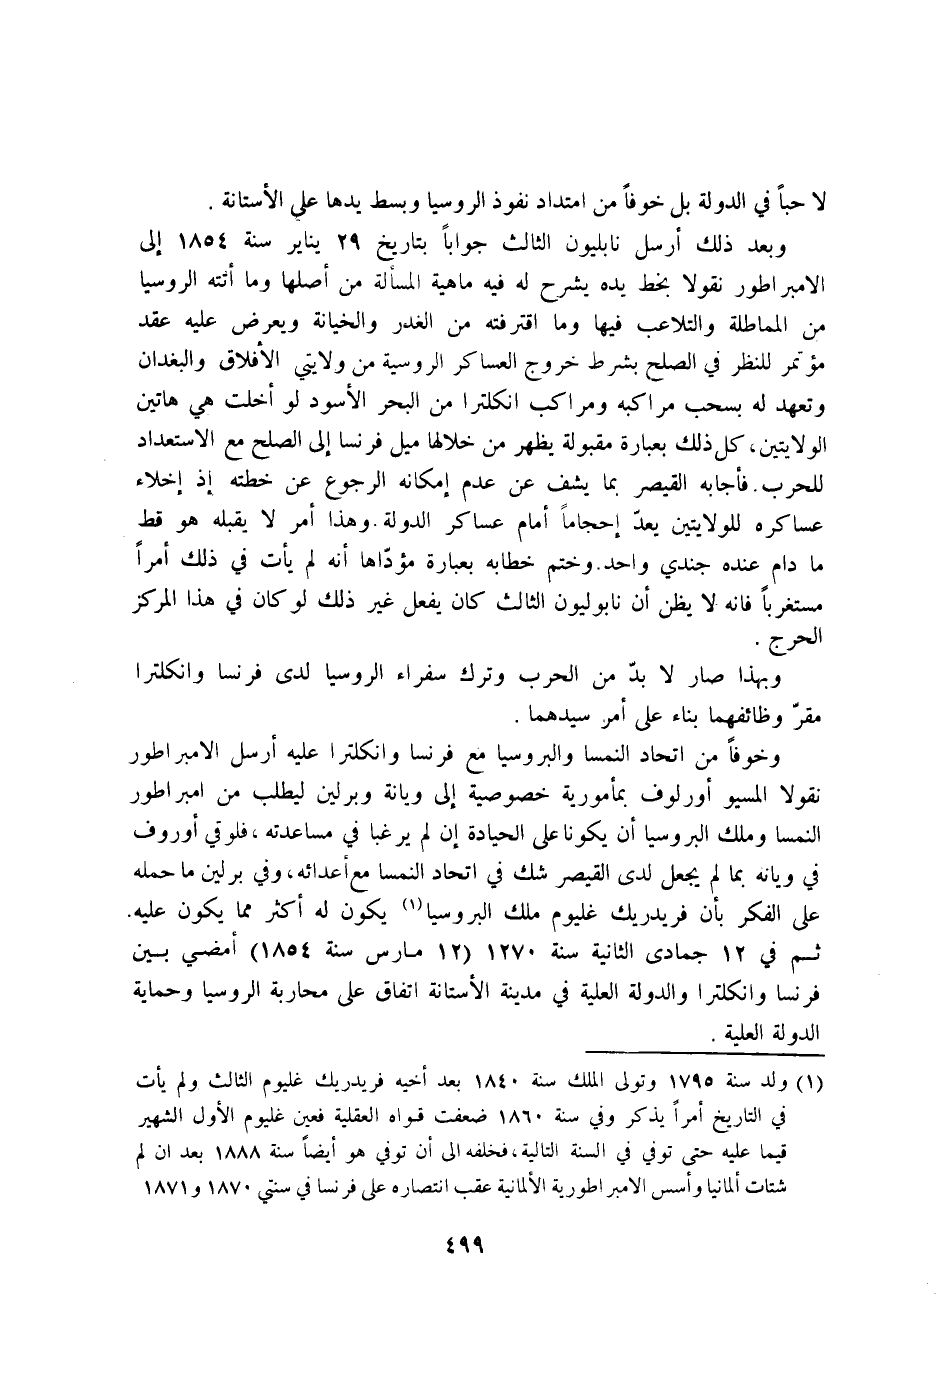 لا حباً في الدولة بل خوفاً من امتداد نفوذ الروسيا وبسط يدها على الأستانة .
وبعد ذلك أرسل نابليون الثالث جواباً بتاريخ ٢٩ يناير سنة ١٨٥٤ إلى
الامبراطور نقولا بخط يده يشرح له فيه ماهية المسألة من أصلها وما أتته الروسيا
من المماطلة والتلاعب فيها وما اقترفته من الغدر والخيانة ويعرض عليه عقد
مؤتمر للنظر في الصلح بشرط خروج العساكر الروسية من ولايتي الأفلاق والبغدان
وتعهد له بسحب مراكبه ومراكب انكلترا من البحر الأسود لو أخلت هي هاتين
الولايتين، كل ذلك بعبارة مقبولة يظهر من خلالها ميل فرنسا إلى الصلح مع الاستعداد
للحرب. فأجابه القيصر بما يشف عن عدم إمكانه الرجوع عن خطته إذ إخلاء
عساكره للولايتين يعدّ إحجاماً أمام عساكر الدولة. وهذا أمر لا يقبله هو قط
ما دام عنده جندي واحد. وختم خطابه بعبارة مؤدّاها أنه لم يأت في ذلك أمراً
مستغرباً فانه لا يظن أن نابوليون الثالث كان يفعل غير ذلك لو كان في هذا المركز
الحرج .
وبهذا صار لا بدّ من الحرب وترك سفراء الروسيا لدى فرنسا وانكلترا
مقرّ وظائفهما بناء على أمر سيدهما .
وخوفاً من اتحاد النمسا والبروسيا مع فرنسا وانكلترا عليه أرسل الامبراطور
نقولا المسيو أورلوف بمأمورية خصوصية إلى ويانة وبرلين ليطلب من امبراطور
النمسا وملك البروسيا أن يكونا على الحيادة إن لم يرغبا في مساعدته، فلوقي أوروف
في ويانه بما لم يجعل لدى القيصر شك في اتحاد النمسا مع أعدائه، وفي برلين ما حمله
على الفكر بأن فريدريك غليوم ملك البروسيا(١) يكون له أكثر مما يكون عليه.
ثم في ١٢ جمادى الثانية سنة ١٢٧٠ (١٢ مارس سنة ١٨٥٤) أمضي بين
فرنسا وانكلترا والدولة العلية في مدينة الأستانة اتفاق على محاربة الروسيا وحماية
الدولة العلية .
(١) ولد سنة ١٧٩٥ وتولى الملك سنة ١٨٤٠ بعد أخيه فريدريك غليوم الثالث ولم يأت
في التاريخ أمراً يذكر وفي سنة ١٨٦٠ ضعفت قواه العقلية فعين غليوم الأول الشهير
قيما عليه حتى توفي في السنة التالية، فخلفه الى أن توفي هو أيضاً سنة ١٨٨٨ بعد ان لم
شتات ألمانيا وأسس الامبراطورية الألمانية عقب انتصاره على فرنسا في سنتي ١٨٧٠ و١٨٧١
٤٩٩